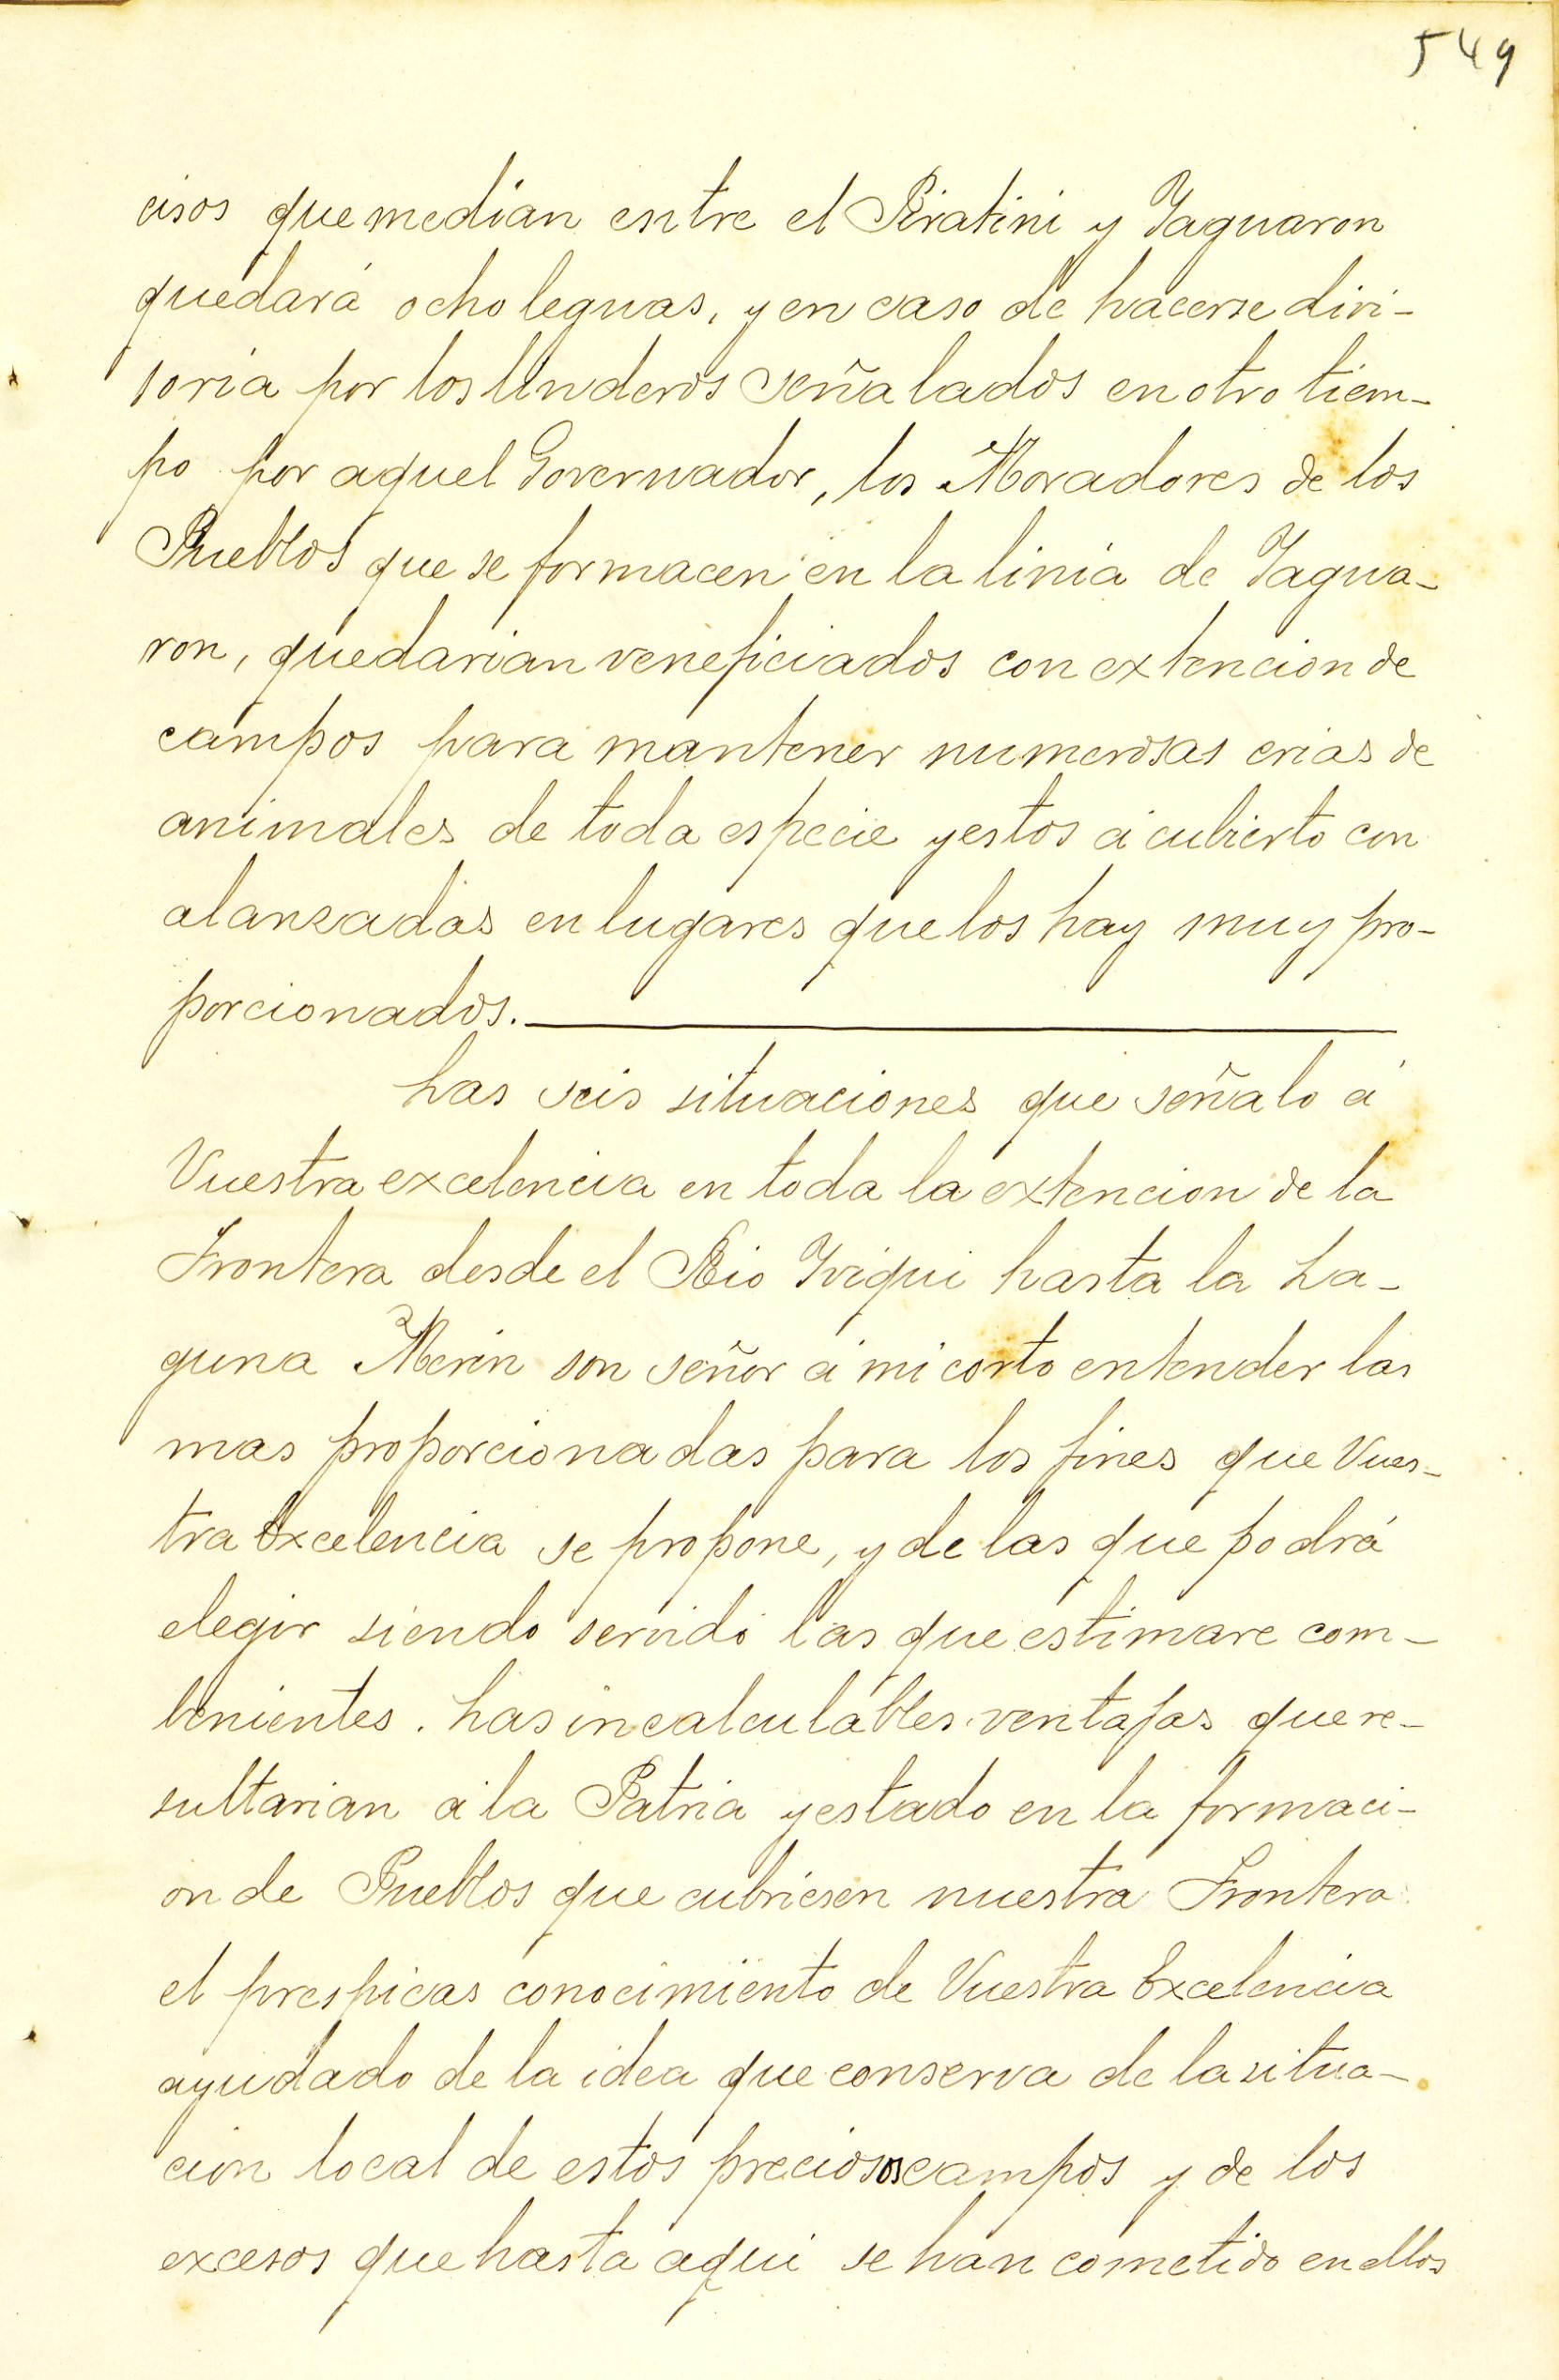 549
cisos que median entre el Piratini y Yaguaron
quedará ocho leguas, y en caso de hacerse divi-
soria por los linderos señalados en otro tiem-
po por aquel Governador, los Moradores de los
Pueblos que se formacen en la linia de Yagua-
ron, quedarian veneficiados con extencion de
campos para mantener numerosas crias de
animales de toda especie y estos á cubierto con
abanzadas en lugares que los hay muy pro-
porcionados.
Las seis situaciones que señalo á
Vuestra excelencia en toda la extencion de la
Frontera desde el Rio Yviqui hasta la La-
guna Merin son señor á mi corto entender las
mas proporcionadas para los fines que Vues-
tra Excelencia se propone, y de las que podrá
elegir siendo servido las que estimare com-
benientes. Las incalculables ventajas que re-
sultarian á la Patria y estado en la formaci-
on de Pueblos que cubriesen nuestra Frontera
el prespicas conocimiento de Vuestra Excelencia
ayudado de la idea que conserva de la situa-
cion local de estos preciosos campos y de los
excesos que hasta aqui se han cometido en ellos